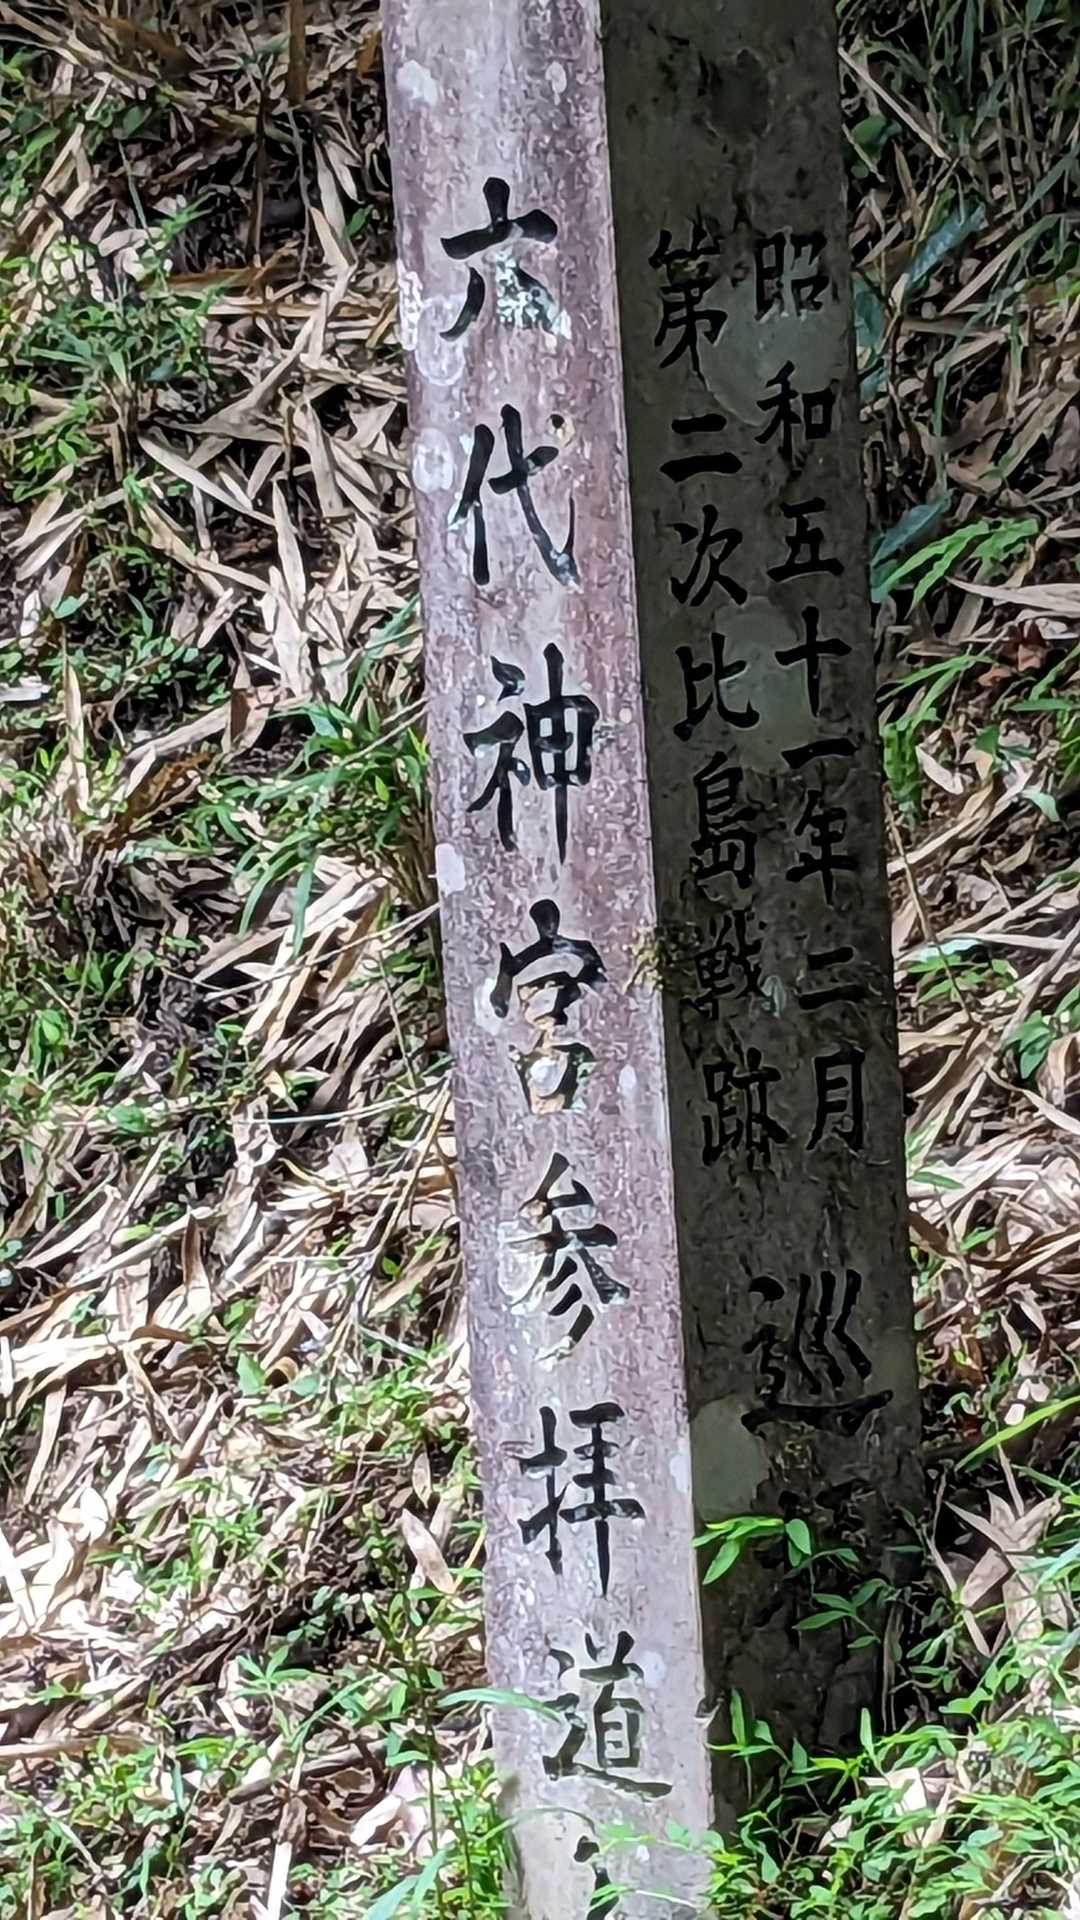 昭和五十一年二月
第二次比島戦跡巡
六代神宮参拝道